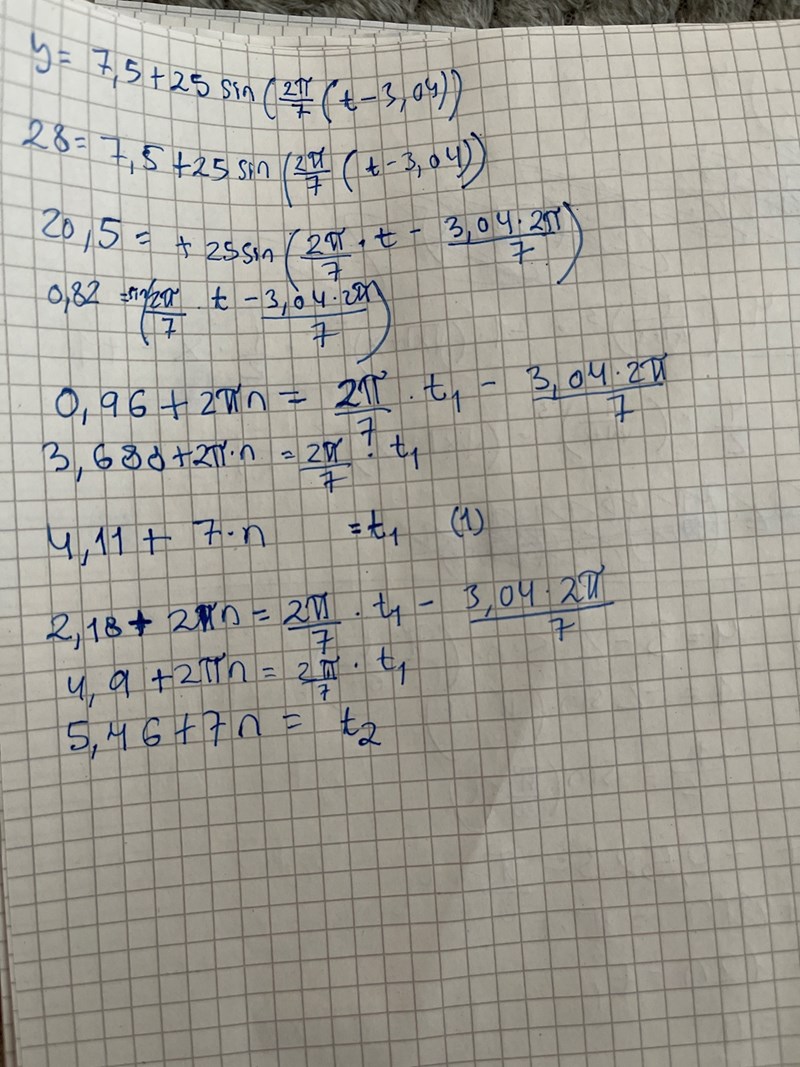 y = 7,5 + 25 sin(2π/7 (t - 3,04))
28 = 7,5 + 25 sin(2π/7 (t - 3,04))
20,5 = + 25 sin(2π/7 · t - 3,04 · 2π/7)
0,82 = sin(2π/7 · t - 3,04 · 2π/7)
0,96 + 2πn = 2π/7 · t₁ - 3,04 · 2π/7
3,688 + 2π·n = 2π/7 · t₁
4,11 + 7·n = t₁ (1)
2,18 + 2πn = 2π/7 · t₁ - 3,04 · 2π/7
4,9 + 2πn = 2π/7 · t₁
5,46 + 7n = t₂